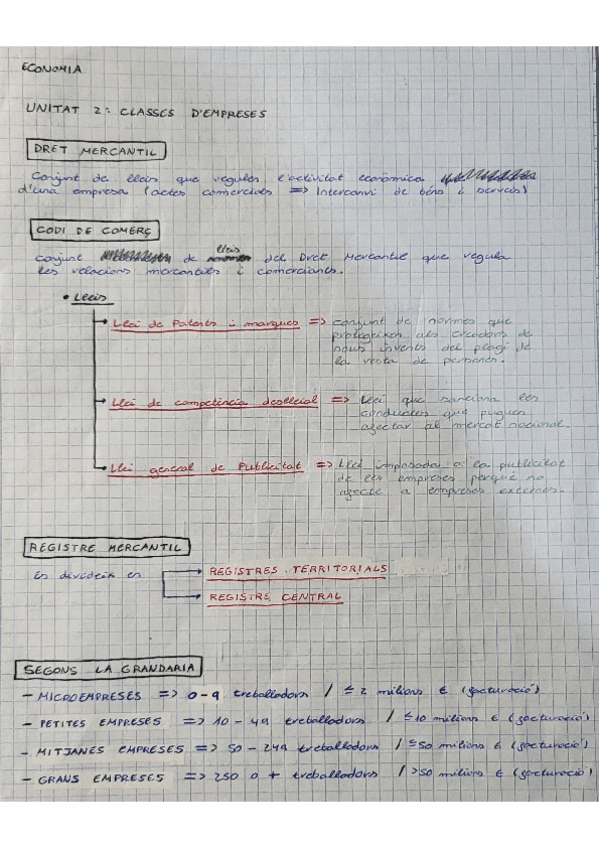 ECONOMIA
UNITAT 2: CLASSES D'EMPRESES
DRET MERCANTIL
Conjunt de lleis que regulen l'activitat econòmica
d'una empresa (actes comercials => Intercanvi de béns i serveis)
CODI DE COMERÇ
Conjunt de lleis del Dret Mercantil que regula
les relacions mercantils i comerciants.
• Lleis
Llei de Patents i marques => conjunt de normes que
protegeixen als creadors de
nous invents del plagi de
la resta de persones.
Llei de competència deslleial => Llei que sanciona les
conductes que puguen
afectar al mercat nacional.
Llei general de Publicitat => Llei imposada a la publicitat
de les empreses perquè no
afecte a empreses externes.
REGISTRE MERCANTIL
Es divideix en
REGISTRES TERRITORIALS
REGISTRE CENTRAL
SEGONS LA GRANDARIA
- MICROEMPRESES => 0-9 treballadors / ≤ 2 milions € (facturació)
- PETITES EMPRESES => 10-49 treballadors / ≤10 milions € (facturació)
- MITJANES EMPRESES => 50-249 treballadors / ≤50 milions € (facturació)
- GRANS EMPRESES => 250 o + treballadors / >50 milions € (facturació)